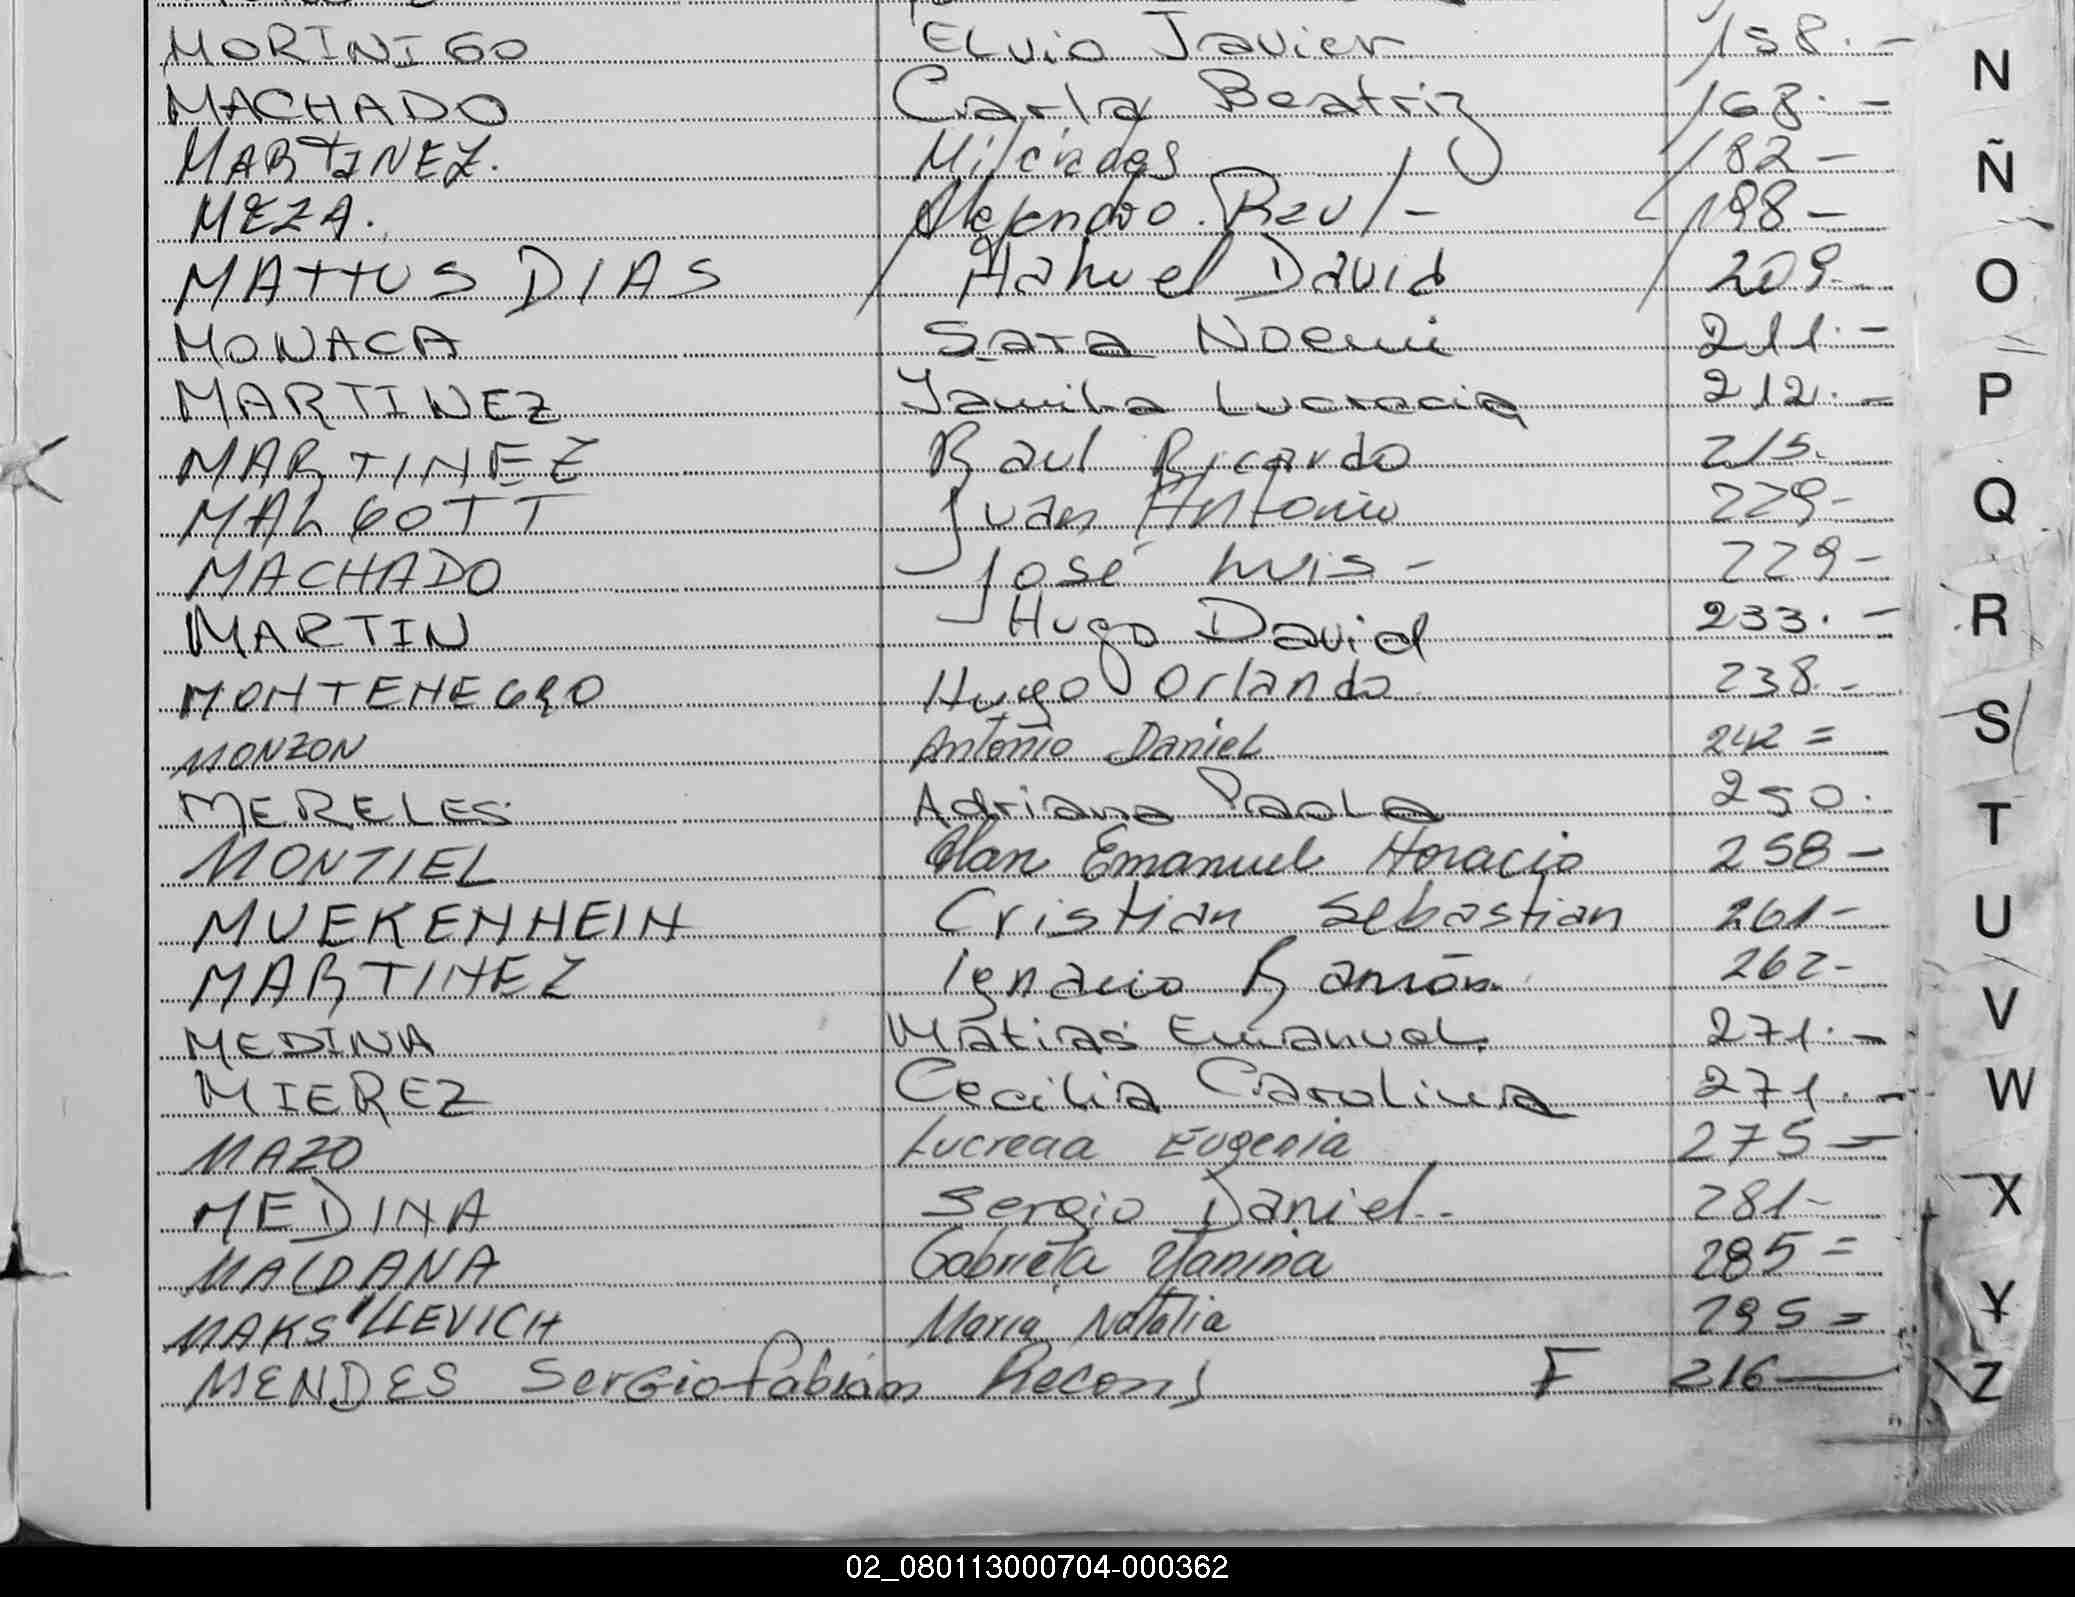 MORINIGO Elvio Javier 158.-
MACHADO Carla Beatriz 168.-
MARTINEZ. Milciades 182-
MEZA. Alejandro. Raul- 198-
MATTUS DIAS Manuel David 209-
MONACA Sara Noemi 211.-
MARTINEZ Yamila Lucrecia 212.-
MARTINEZ Raul Ricardo 215.
MALGOTT Juan Antonio 229-
MACHADO José Luis- 229-
MARTIN Hugo David 233.-
MONTENEGRO Hugo Orlando 238.-
MONZON Antonio Daniel 242=
MERELES Adriana Paola 250.
MONTIEL Alan Emanuel Horacio 258-
MUEKENHEIN Cristian Sebastian 261-
MARTINEZ Ignacio Ramón 262-
MEDINA Matias Emanuel. 271.-
MIEREZ Cecilia Carolina 271.-
MAZO Lucrecia Eugenia 275=
MEDINA Sergio Daniel- 281-
MALDANA Gabriela Yanina 285=
MAKSILLEVICH Maria Natalia 295=
MENDES Sergio Fabian Recons F 216-
N
Ñ
O
P
Q
R
S
T
U
V
W
X
Y
Z
02_080113000704-000362